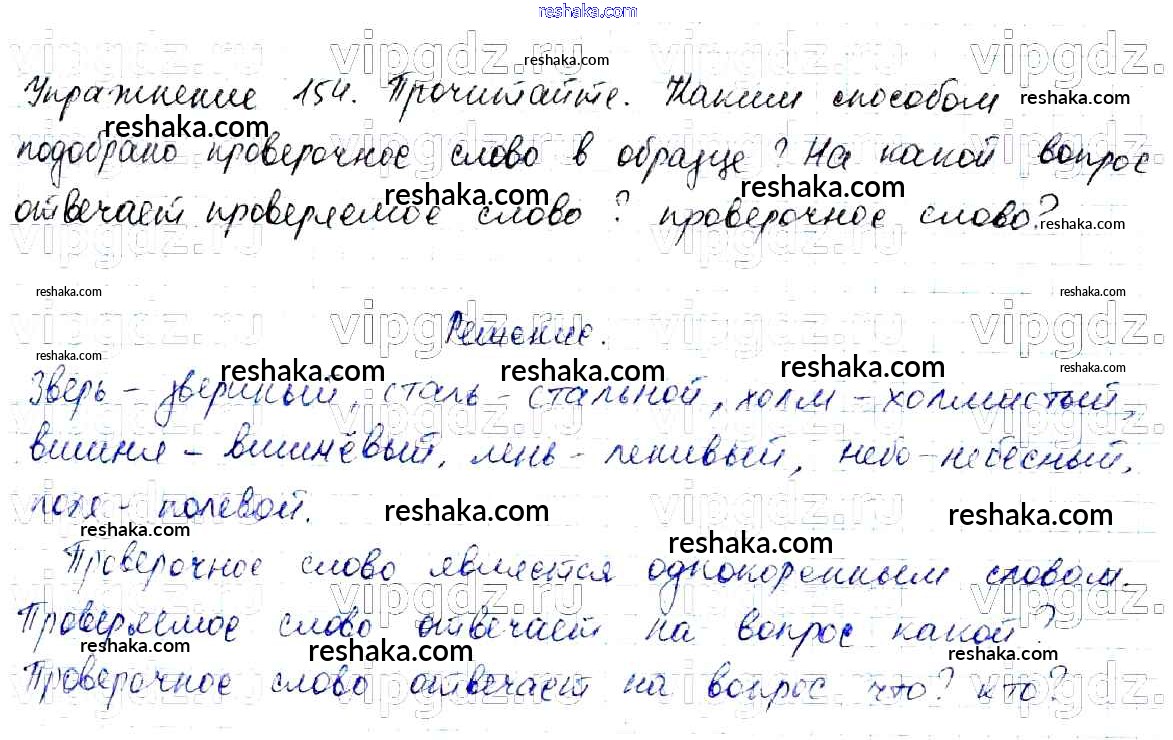 resheba.com
Упражнение 154. Прочитайте. Каким способом
подобрано проверочное слово в образце? На какой вопрос
отвечает проверяемое слово? проверочное слово?
Решение.
Зверь - звериный, сталь - стальной, холм - холмистый,
вишня - вишнёвый, лень - ленивый, небо - небесный,
поле - полевой.
Проверочное слово является однокоренным словом.
Проверяемое слово отвечает на вопрос какой?
Проверочное слово отвечает на вопрос что? кто?
reshaka.com
vipgdz.ru